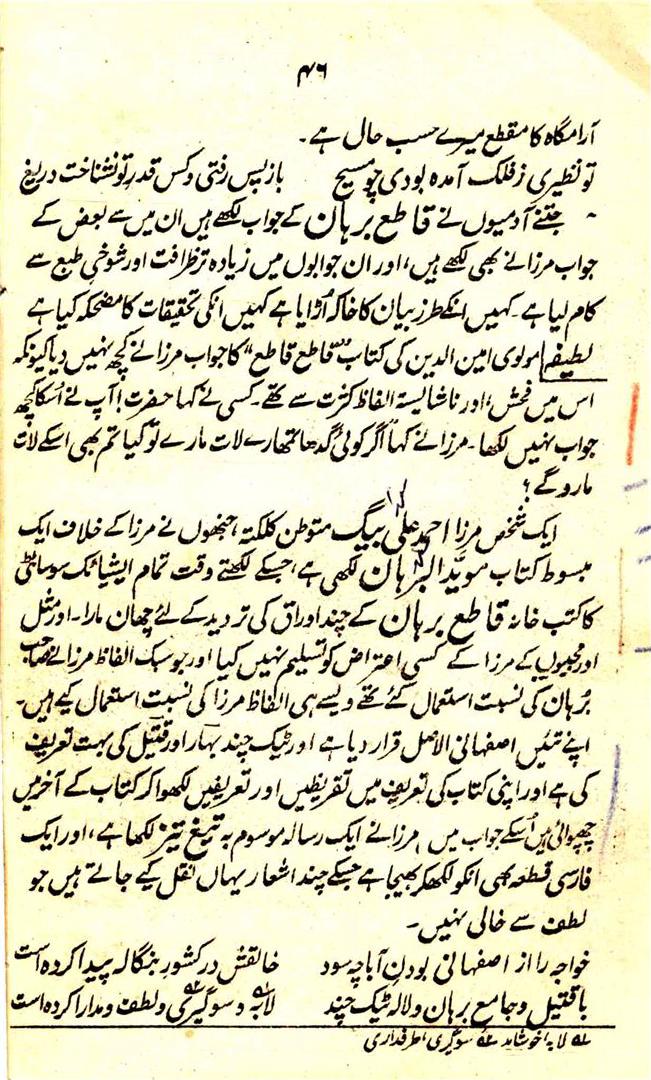 ۴۶
آرامگاہ کا مقطع میرے حسب حال ہے۔
تو نظیری ز فلک آمدہ بودی چو مسیح باز پس رفتی و کس قدرِ تو نشناخت دریغ
جتنے آدمیوں نے قاطع برہان کے جواب لکھے ہیں ان میں سے بعض کے
جواب مرزا نے بھی لکھے ہیں، اور ان جوابوں میں زیادہ تر ظرافت اور شوخیِ طبع سے
کام لیا ہے۔ کہیں انکے طرز بیان کا خاکہ اُڑایا ہے کہیں انکی تحقیقات کا مضحکہ کیا ہے
لطیفہ مولوی امین الدین کی کتاب "قاطع قاطع" کا جواب مرزا نے کچھ نہیں دیا کیونکہ
اس میں فحش، اور ناشایستہ الفاظ کثرت سے تھے۔ کسی نے کہا حضرت! آپ نے اُسکا کچھ
جواب نہیں لکھا۔ مرزا نے کہا "اگر کوئی گدھا تمھارے لات مارے تو کیا تم بھی اسکے لات
مارو گے؟
ایک شخص مرزا احمد علی بیگ متوطن کلکتہ، جنھوں نے مرزا کے خلاف ایک
مبسوط کتاب موید البرہان لکھی ہے، جسکے لکھتے وقت تمام ایشیاٹک سوسائٹی
کا کتب خانہ قاطع برہان کے چند اوراق کی تردید کے لئے چھان مارا۔ اور مثل
اور مجیبوں کے مرزا کے کسی اعتراض کو تسلیم نہیں کیا اور جو سبک الفاظ مرزا نے صاحب
بُرہان کی نسبت استعمال کئے تھے ویسے ہی الفاظ مرزا کی نسبت استعمال کیے ہیں۔
اپنے تئیں اصفہانی الاصل قرار دیا ہے اور ٹیک چند بہار اور قتیل کی بہت تعریف
کی ہے اور اپنی کتاب کی تعریف میں تقریظیں اور تعریفیں لکھوا کر کتاب کے آخر میں
چھپوائی ہیں اُسکے جواب میں مرزا نے ایک رسالہ موسوم بہ تیغ تیز لکھا ہے، اور ایک
فارسی قطعہ بھی انکو لکھکر بھیجا ہے جسکے چند اشعار یہاں نقل کیے جاتے ہیں جو
لطف سے خالی نہیں۔
خواجہ را از اصفہانی بودنِ آبا چہ سود خالقش در کشورِ بنگالہ پیدا کردہ است
با قتیل و جامع برہان و لالہ ٹیک چند لابہ و سوگیری و لطف و مدارا کردہ است
۱؎ لابہ، خوشامد ۲؎ سوگیری، طرفداری